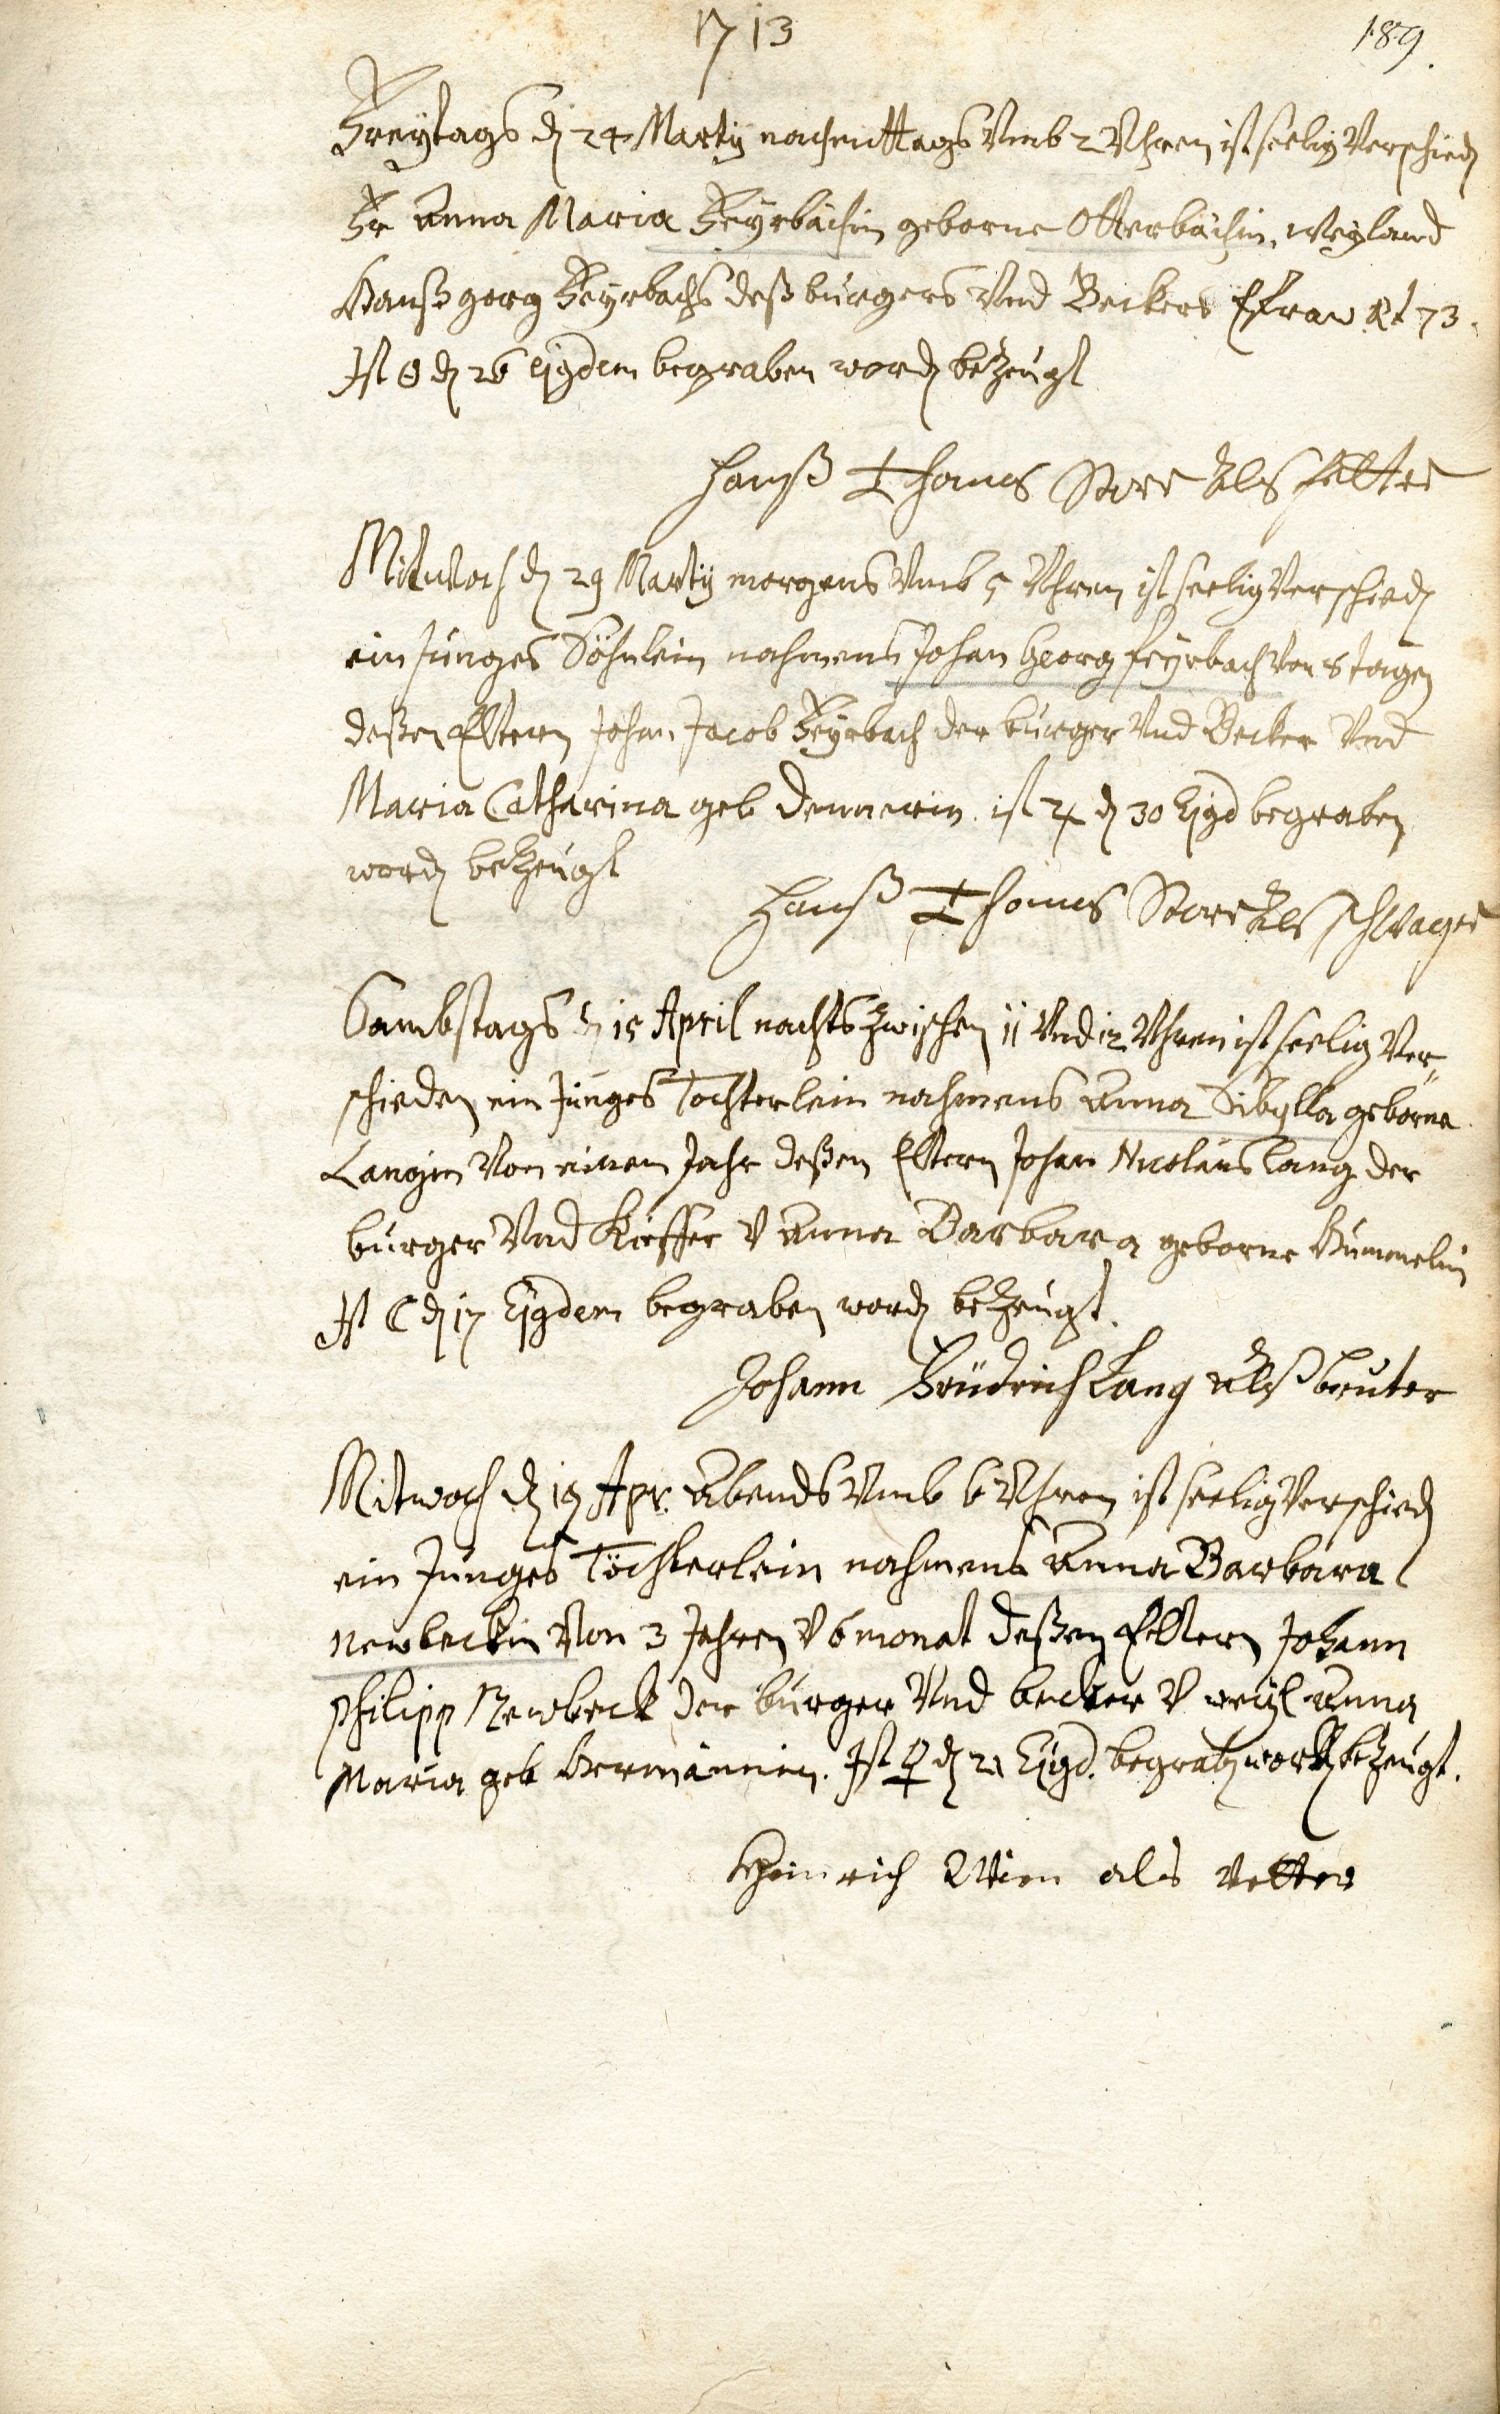 1713
189.
Freytags dn 24 Marty nachmittags Umb 2 Uhren ist seelig Verschiedn
Fr Anna Maria Feyrbächin geborne Otterbächin, weyland
Hanß georg Feyrbachs deß burgers Und Beckers Efraw Æt 73.
Ist ☉ dn 26 ejgdem begraben wordn bezeugt
Hanß Thomas Storr Als fetter
Mitwoch dn 29 Marty morgens Umb 5 Uhren ist seelig Verschiedn
ein Junges Söhnlein nahmens Johan Georg feyrbach von 8 tagen
deßen Eltern Johan Jacob Feyrbach der burger Und Becker Und
Maria Catharina geb Dennerin. ist ♃ dn 30 Ejgd begraben
wordn bezeugt
Hanß Thomas Storr Als schwager
Sambstags dn 15 April nachts zwischen 11 Und 12 Uhren ist seelig Ver„
schieden ein Junges Töchterlein nahmens Anna Sibylla geborne
Langin Von einem Jahr deßen Eltern Johan Nicolaus Lang der
burger Und Kieffer V Anna Barbara geborne Kümmelin
Ist ☾ dn 17 Ejgdem begraben wordn bezeugt.
Johann Friedrich Lang Alß bruter
Mitwoch dn 19 Apr. Abends Umb 6 Uhren ist seelig Verschiedn
ein Junges Töchterlein nahmens Anna Barbara
Newbeckin Von 3 Jahren V 6 monat deßen Eltern Johann
Philipp Newbeck der burger Und becker V weyl Anna
Maria geb Hermännin. Ist ♀ dn 21 Ejgd. begrabn wordn bezeugt.
Heinrich als Vetter